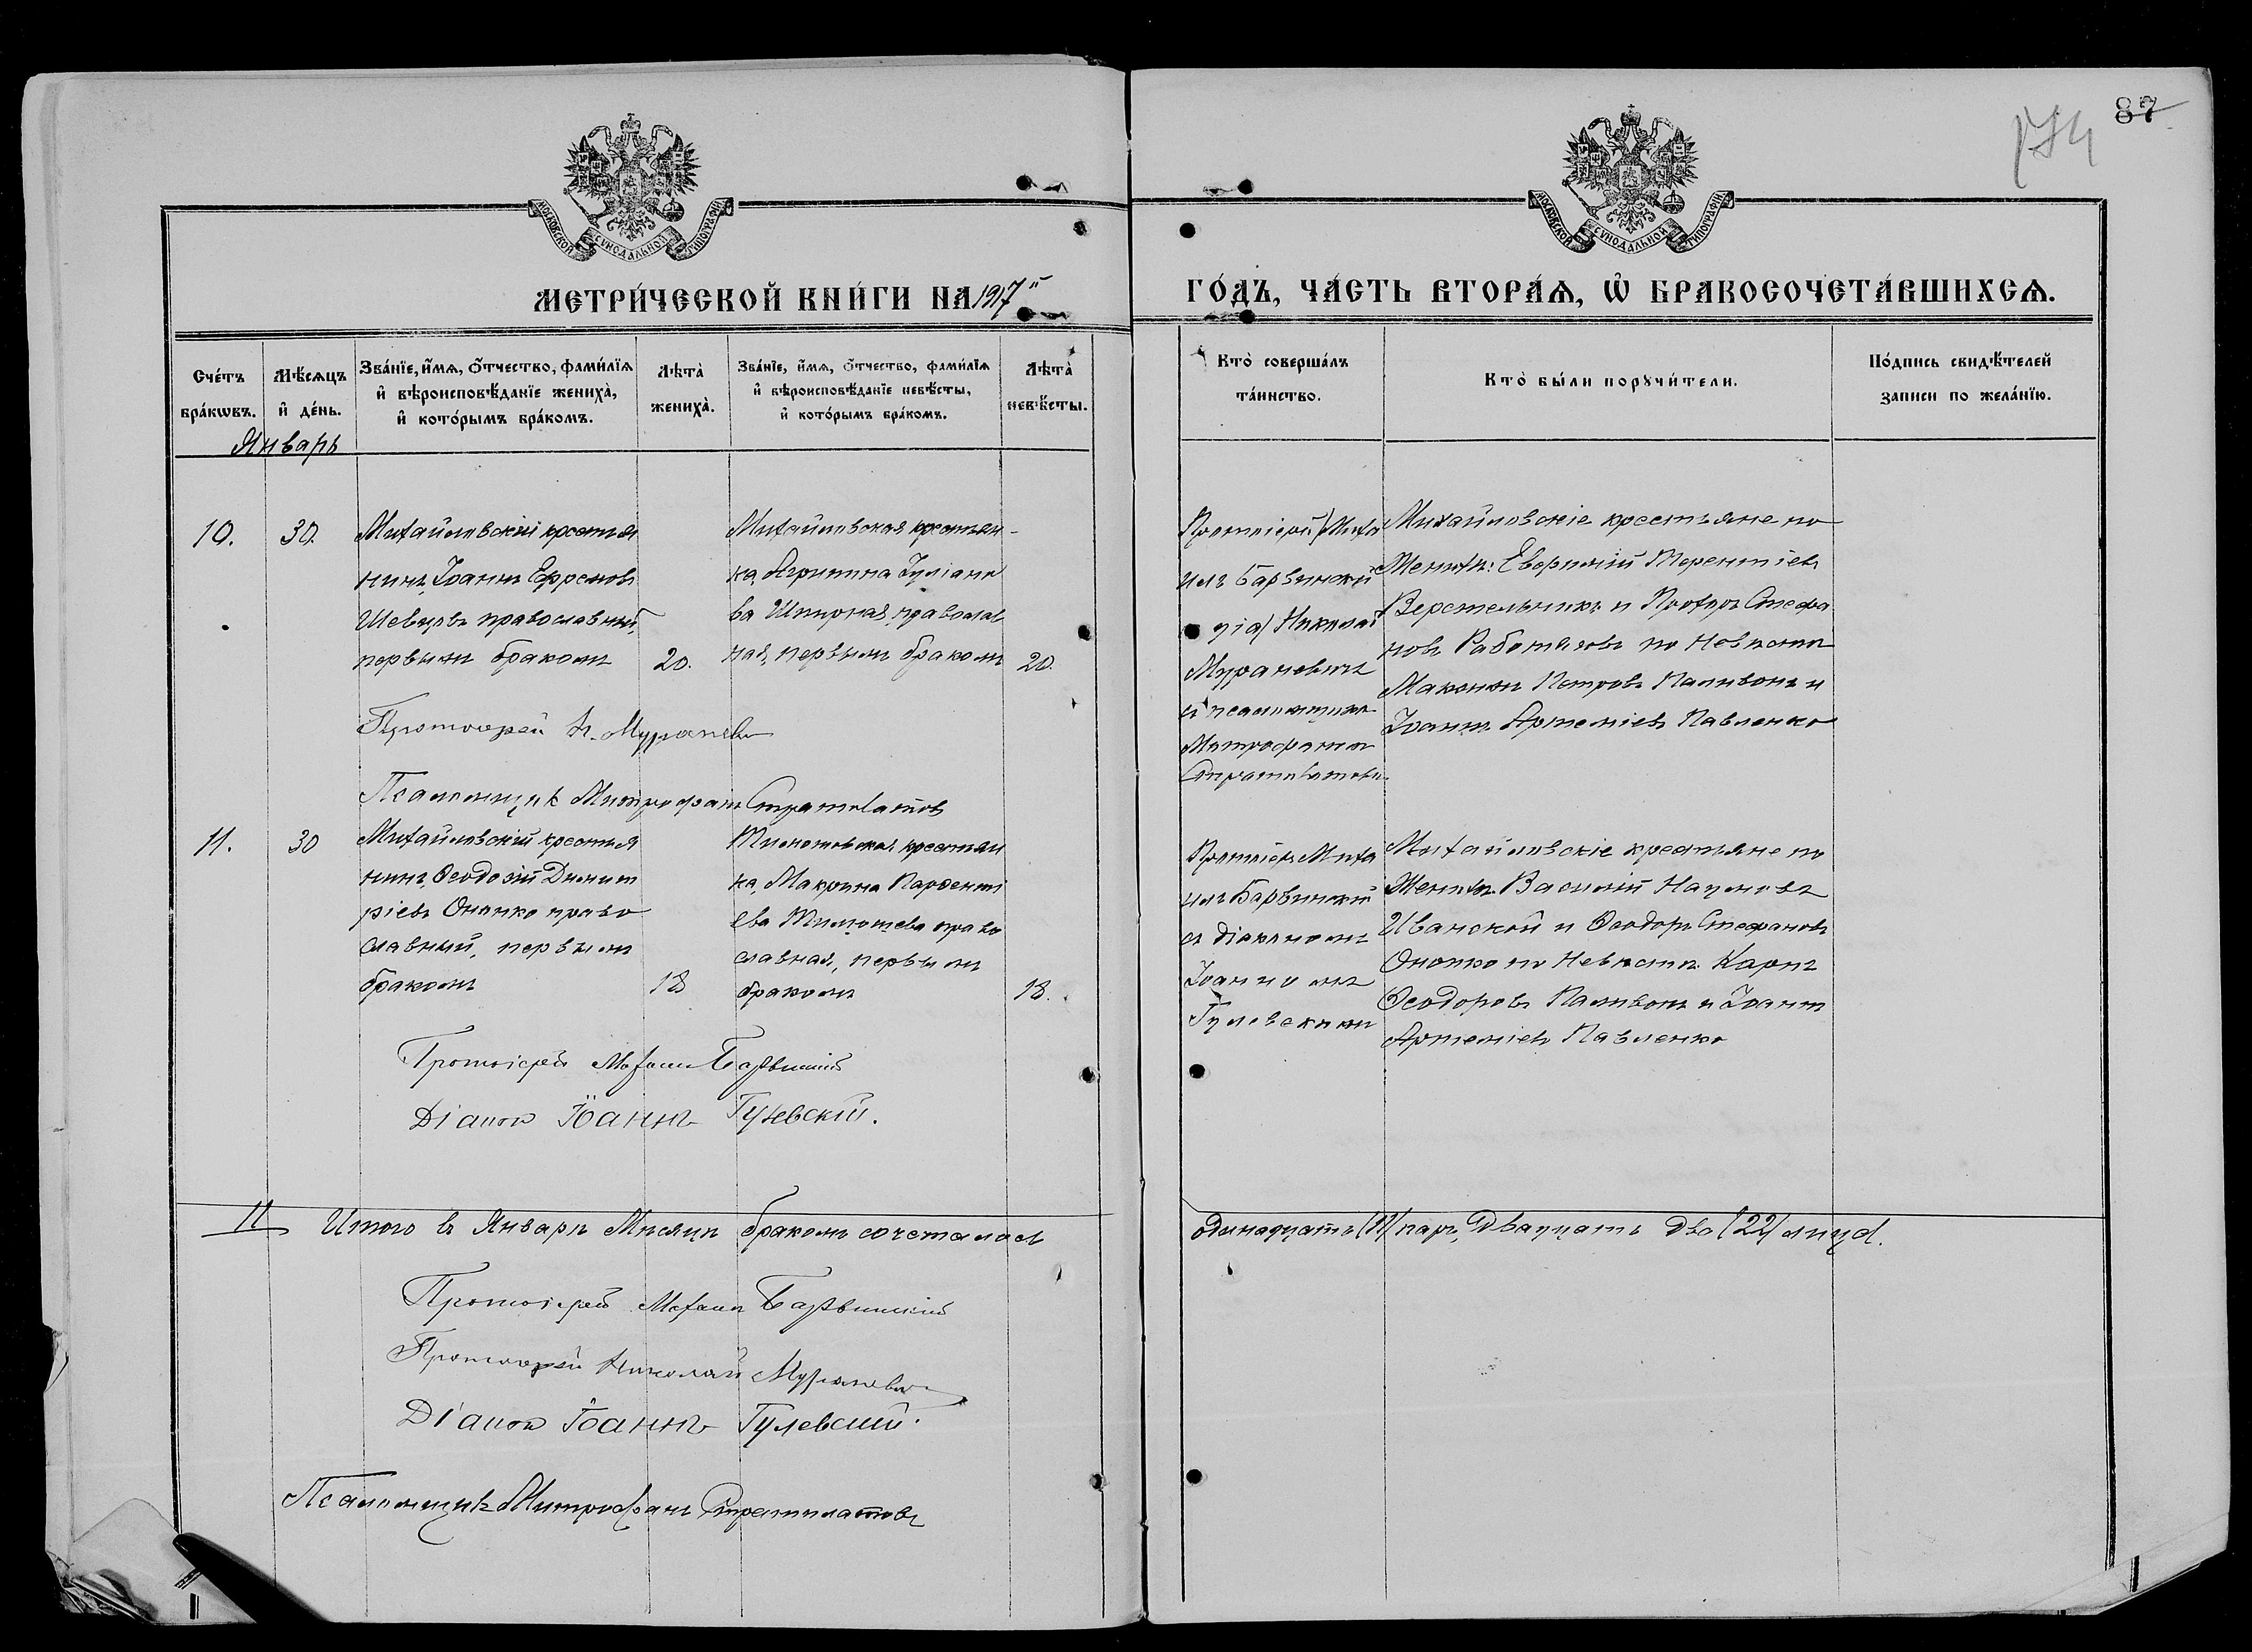 87
174
МОСКОВСКОЙ СѴНОДАЛЬНОЙ ТИПОГРАФІИ
МОСКОВСКОЙ СѴНОДАЛЬНОЙ ТИПОГРАФІИ
МЕТРИ́ЧЕСКОЙ КНИ́ГИ НА 1917
ГО́ДЪ, ЧА́СТЬ ВТОРА́Ѧ, Ѡ҆ БРАКОСОЧЕТА́ВШИХСѦ.
Сче́тъ бра́кѡвъ.
Мѣ́сѧцъ и҆ де́нь.
Зва́нїе, и҆́мѧ, ѻ҆́тчество, фами́лїѧ
и҆ вѣроисповѣ́данїе жениха̀,
и҆ кото́рымъ бра́комъ.
Лѣта̀ жениха̀.
Зва́нїе, и҆́мѧ, ѻ҆́тчество, фами́лїѧ
и҆ вѣроисповѣ́данїе невѣ́сты,
и҆ кото́рымъ бра́комъ.
Лѣта̀ невѣ́сты.
Кто̀ соверша́лъ
та́инство.
Кто̀ бы́ли порꙋчи́тели.
По́дпись свидѣ́телей
записи по жела́нїю.
Январь
10.
30.
Михайловскій крестья
нинъ, Іоаннъ Ефремовъ
Шевцовъ православный,
первымъ бракомъ
20.
Михайловская крестьян-
ка, Агрипина Іуліано
ва православ
ная, первымъ бракомъ
20.
Протоіерей Миха
илъ Барвинскій
Николай
Мураневичъ
и псаломщикъ
Митрофанъ
Стратилатовъ
Михайловскіе крестьяне по
Женихѣ: Евфимій Терентіевъ
Верстельникъ и Прохоръ Стефа
новъ Работяговъ по Невѣстѣ
Максимъ Петровъ Паливонъ и
Іоаннъ Артеміевъ Павленко
Протоіерей Н. Мураневичъ
Псаломщикъ Митрофанъ Стратилатовъ
11.
30
Михайловскій крестья
нинъ, Ѳеодосій Димит
ріевъ Онопко право
славный, первымъ
бракомъ
18
крестьян
ка, Макрина Парѳенті
ева Тимошева право
славная, первымъ
бракомъ
18.
Протоіерей Миха
илъ Барвинскій
съ діакономъ
Іоанномъ
Гулевскимъ
Михайловскіе крестьяне по
Женихѣ Василій Наумовъ
Иванской и Ѳеодоръ Стефановъ
Онопко по Невѣстѣ Карпъ
Ѳеодоровъ Паливонъ и Іоаннъ
Артеміевъ Павленко
Протоіерей Михаилъ Барвинскій
Діаконъ Іоаннъ Гулевскій.
11
Итого въ Январѣ Мѣсяцѣ бракомъ сочеталось
одинадцать (11) паръ, Двадцать два (22) лицъ.
Протоіерей Михаилъ Барвинскій
Протоіерей Николай Мураневичъ
Діаконъ Іоаннъ Гулевскій.
Псаломщикъ Митрофанъ Стратилатовъ